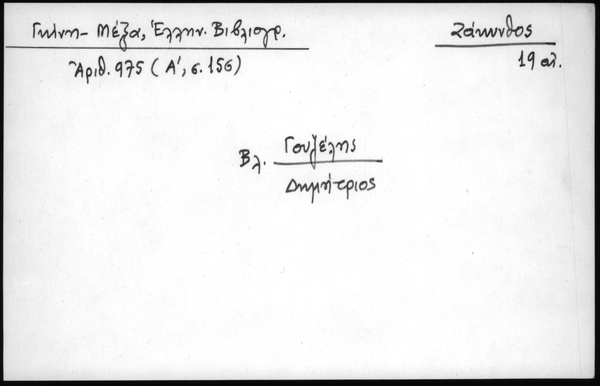 Γκίνη - Μέξα, Ἑλλην. Βιβλιογρ.
Ζάκυνθος
Ἀριθ. 975 (Α', σ. 156)
19 αἰ.
Βλ. Γουζέλης
Δημήτριος